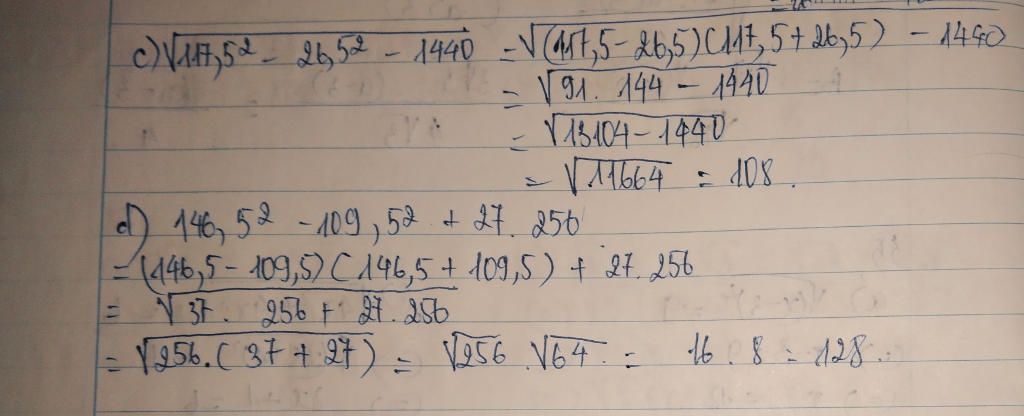 c) √117,5² - 26,5² - 1440 = √(117,5 - 26,5)(117,5 + 26,5) - 1440
= √91. 144 - 1440
= √13104 - 1440
= √11664 = 108.
d) 146,5² - 109,5² + 27. 256
= (146,5 - 109,5)(146,5 + 109,5) + 27.256
= √37. 256 + 27.256
= √256.(37 + 27) = √256 . √64 = 16 . 8 = 128.